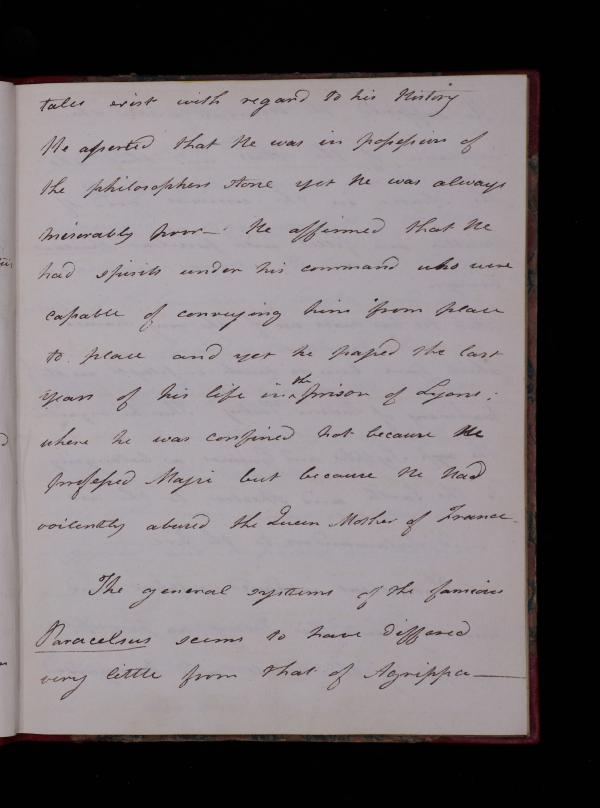 tales exist with regard to his History
He asserted that he was in possession of
the philosophers stone yet he was always
miserably poor — He affirmed that he
had spirits under his command who were
capable of conveying him from place
to place and yet he passed the last
years of his life in the prison of Lyons;
where he was confined not because he
professed Magic but because he had
voilently abused the Queen Mother of France —
The general systems of the famous
Paracelsus seems to have differed
very little from that of Agrippa —